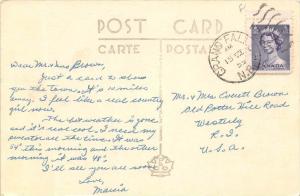 POST CARD
CARTE POSTALE
GRAND FALLS
AM
15
N.B.
CANADA
Dear Mr. & Mrs. Brown,
Just a card to show
you the town. It's 10 miles
away. I feel like a real country
girl now.
The hot weather is gone
and it's real cool. I wear my
sweater all the time. It was
54° this morning and the other
morning it was 48°.
I'll see you all soon
Love,
Marcia
Mr. & Mrs. Everett Brown
Old Potter Hill Road
Westerly
R.I.
U.S.A.